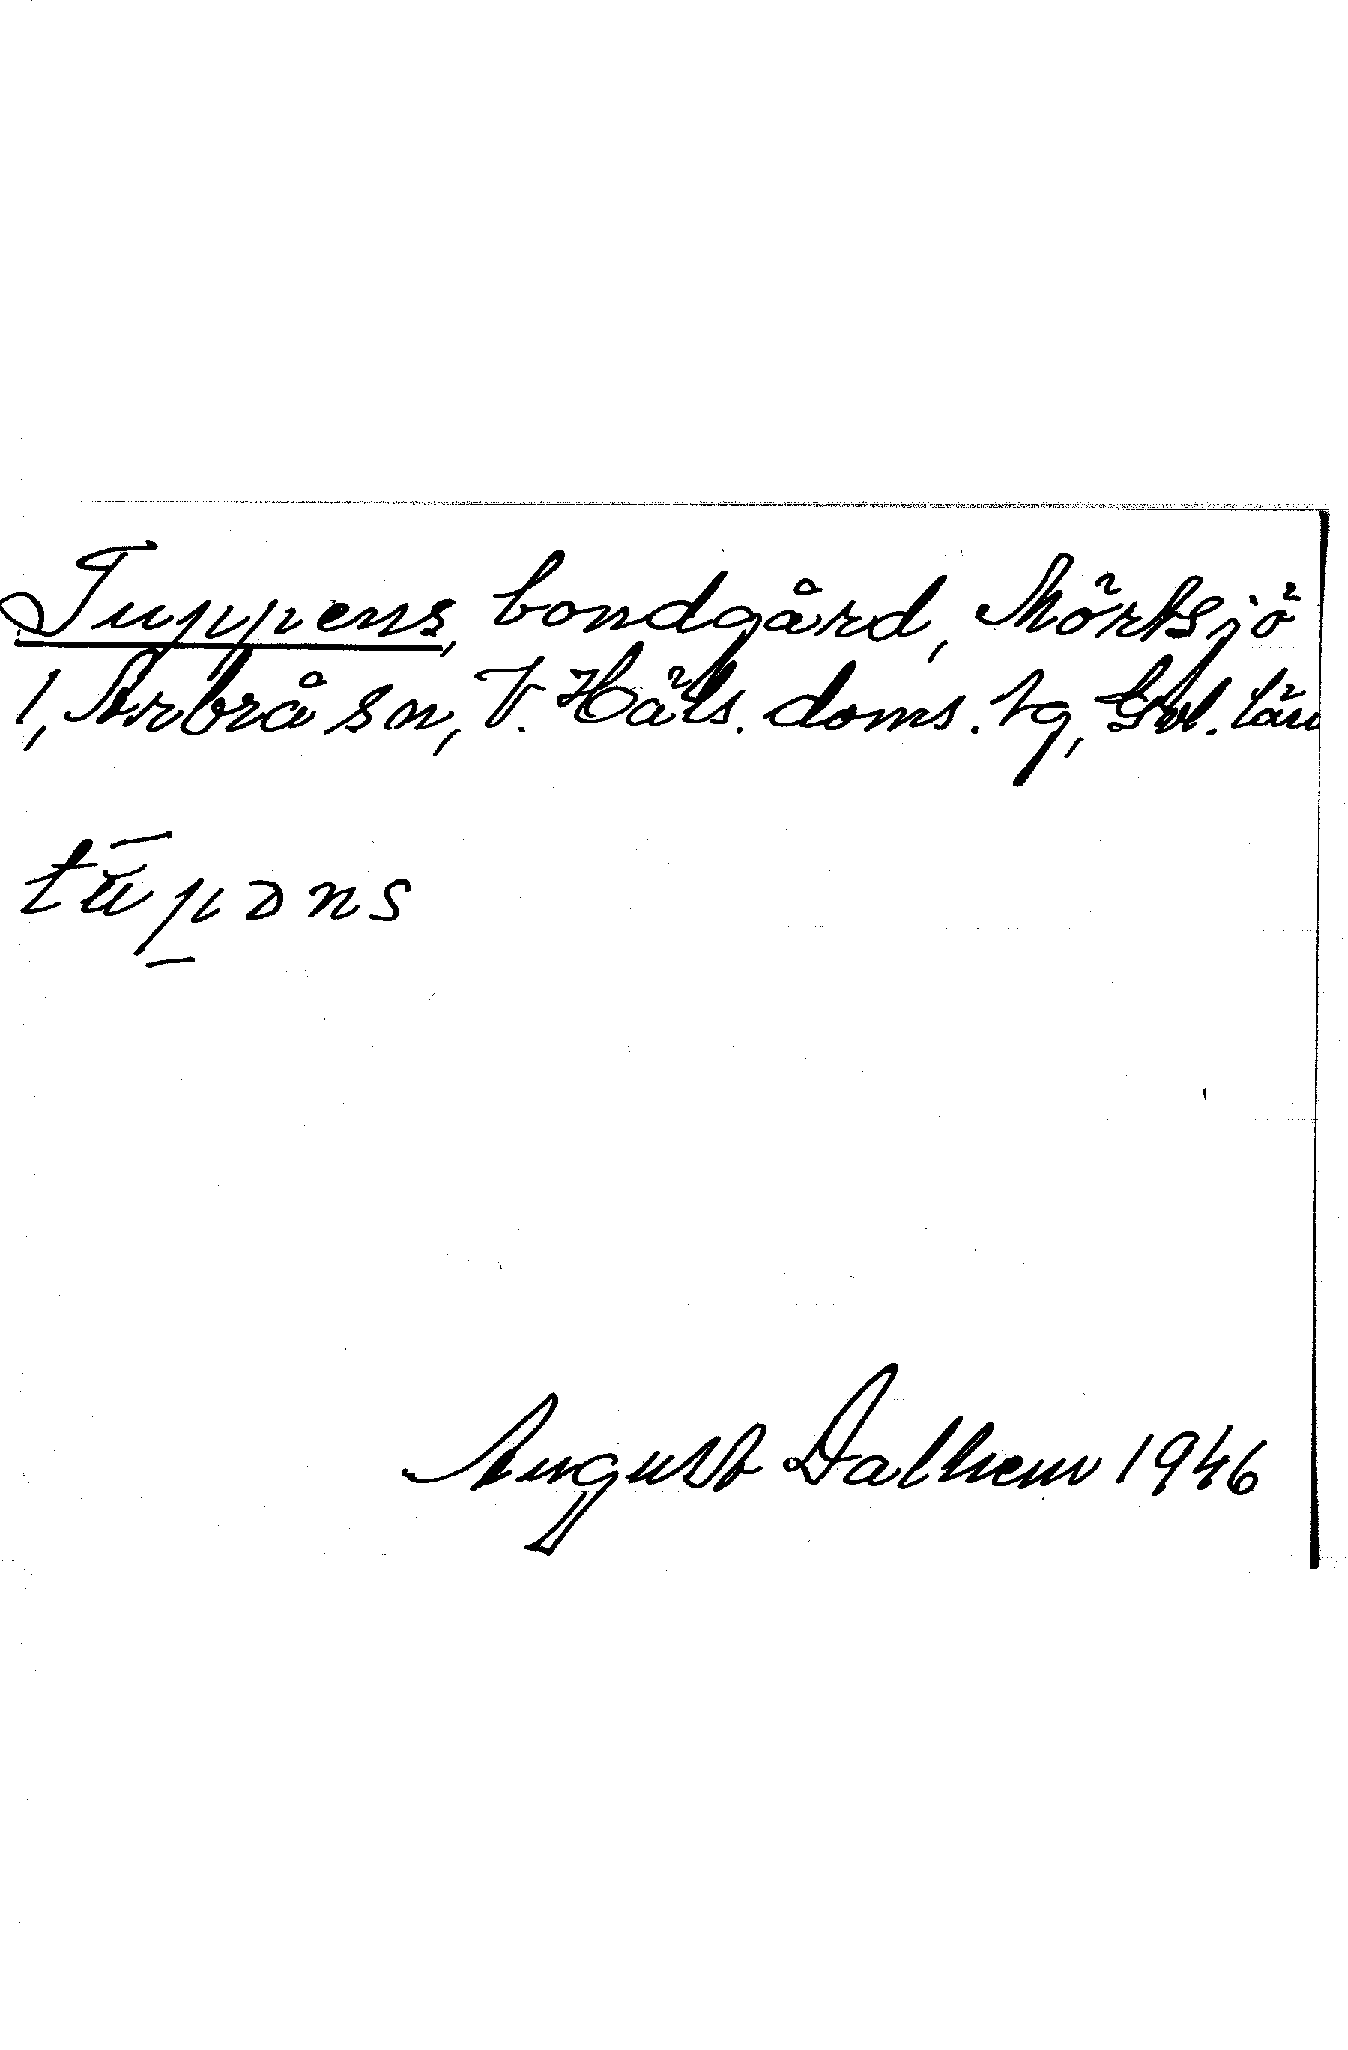 Tuppens, bondgård, Mörtsjö
1, Arbrå sn, V. Häls. doms. tg, Gvl. län
tūp̱əns
August Dalhem 1946